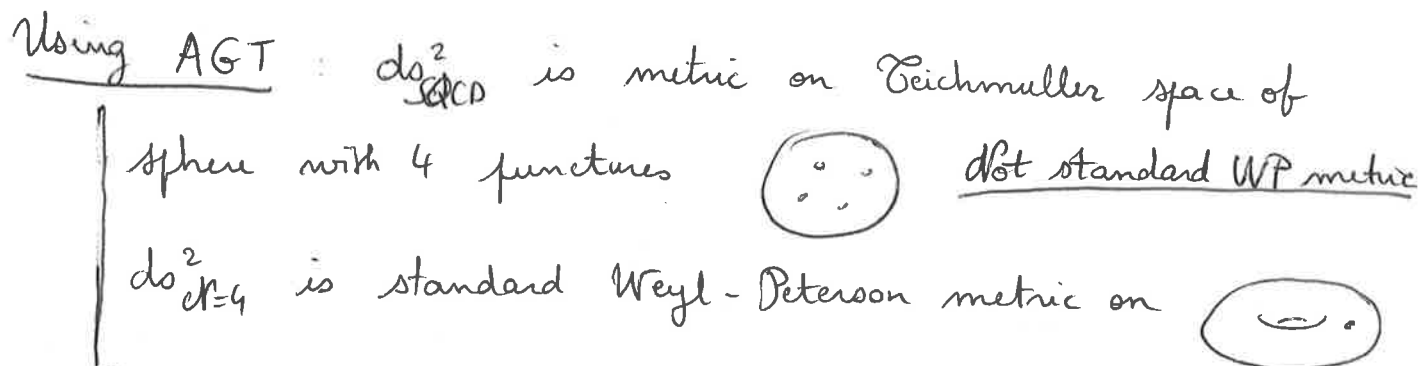 Using AGT : ds²_SQCD is metric on Teichmuller space of
sphere with 4 punctures Not standard WP metric
ds²_N=4 is standard Weyl-Peterson metric on